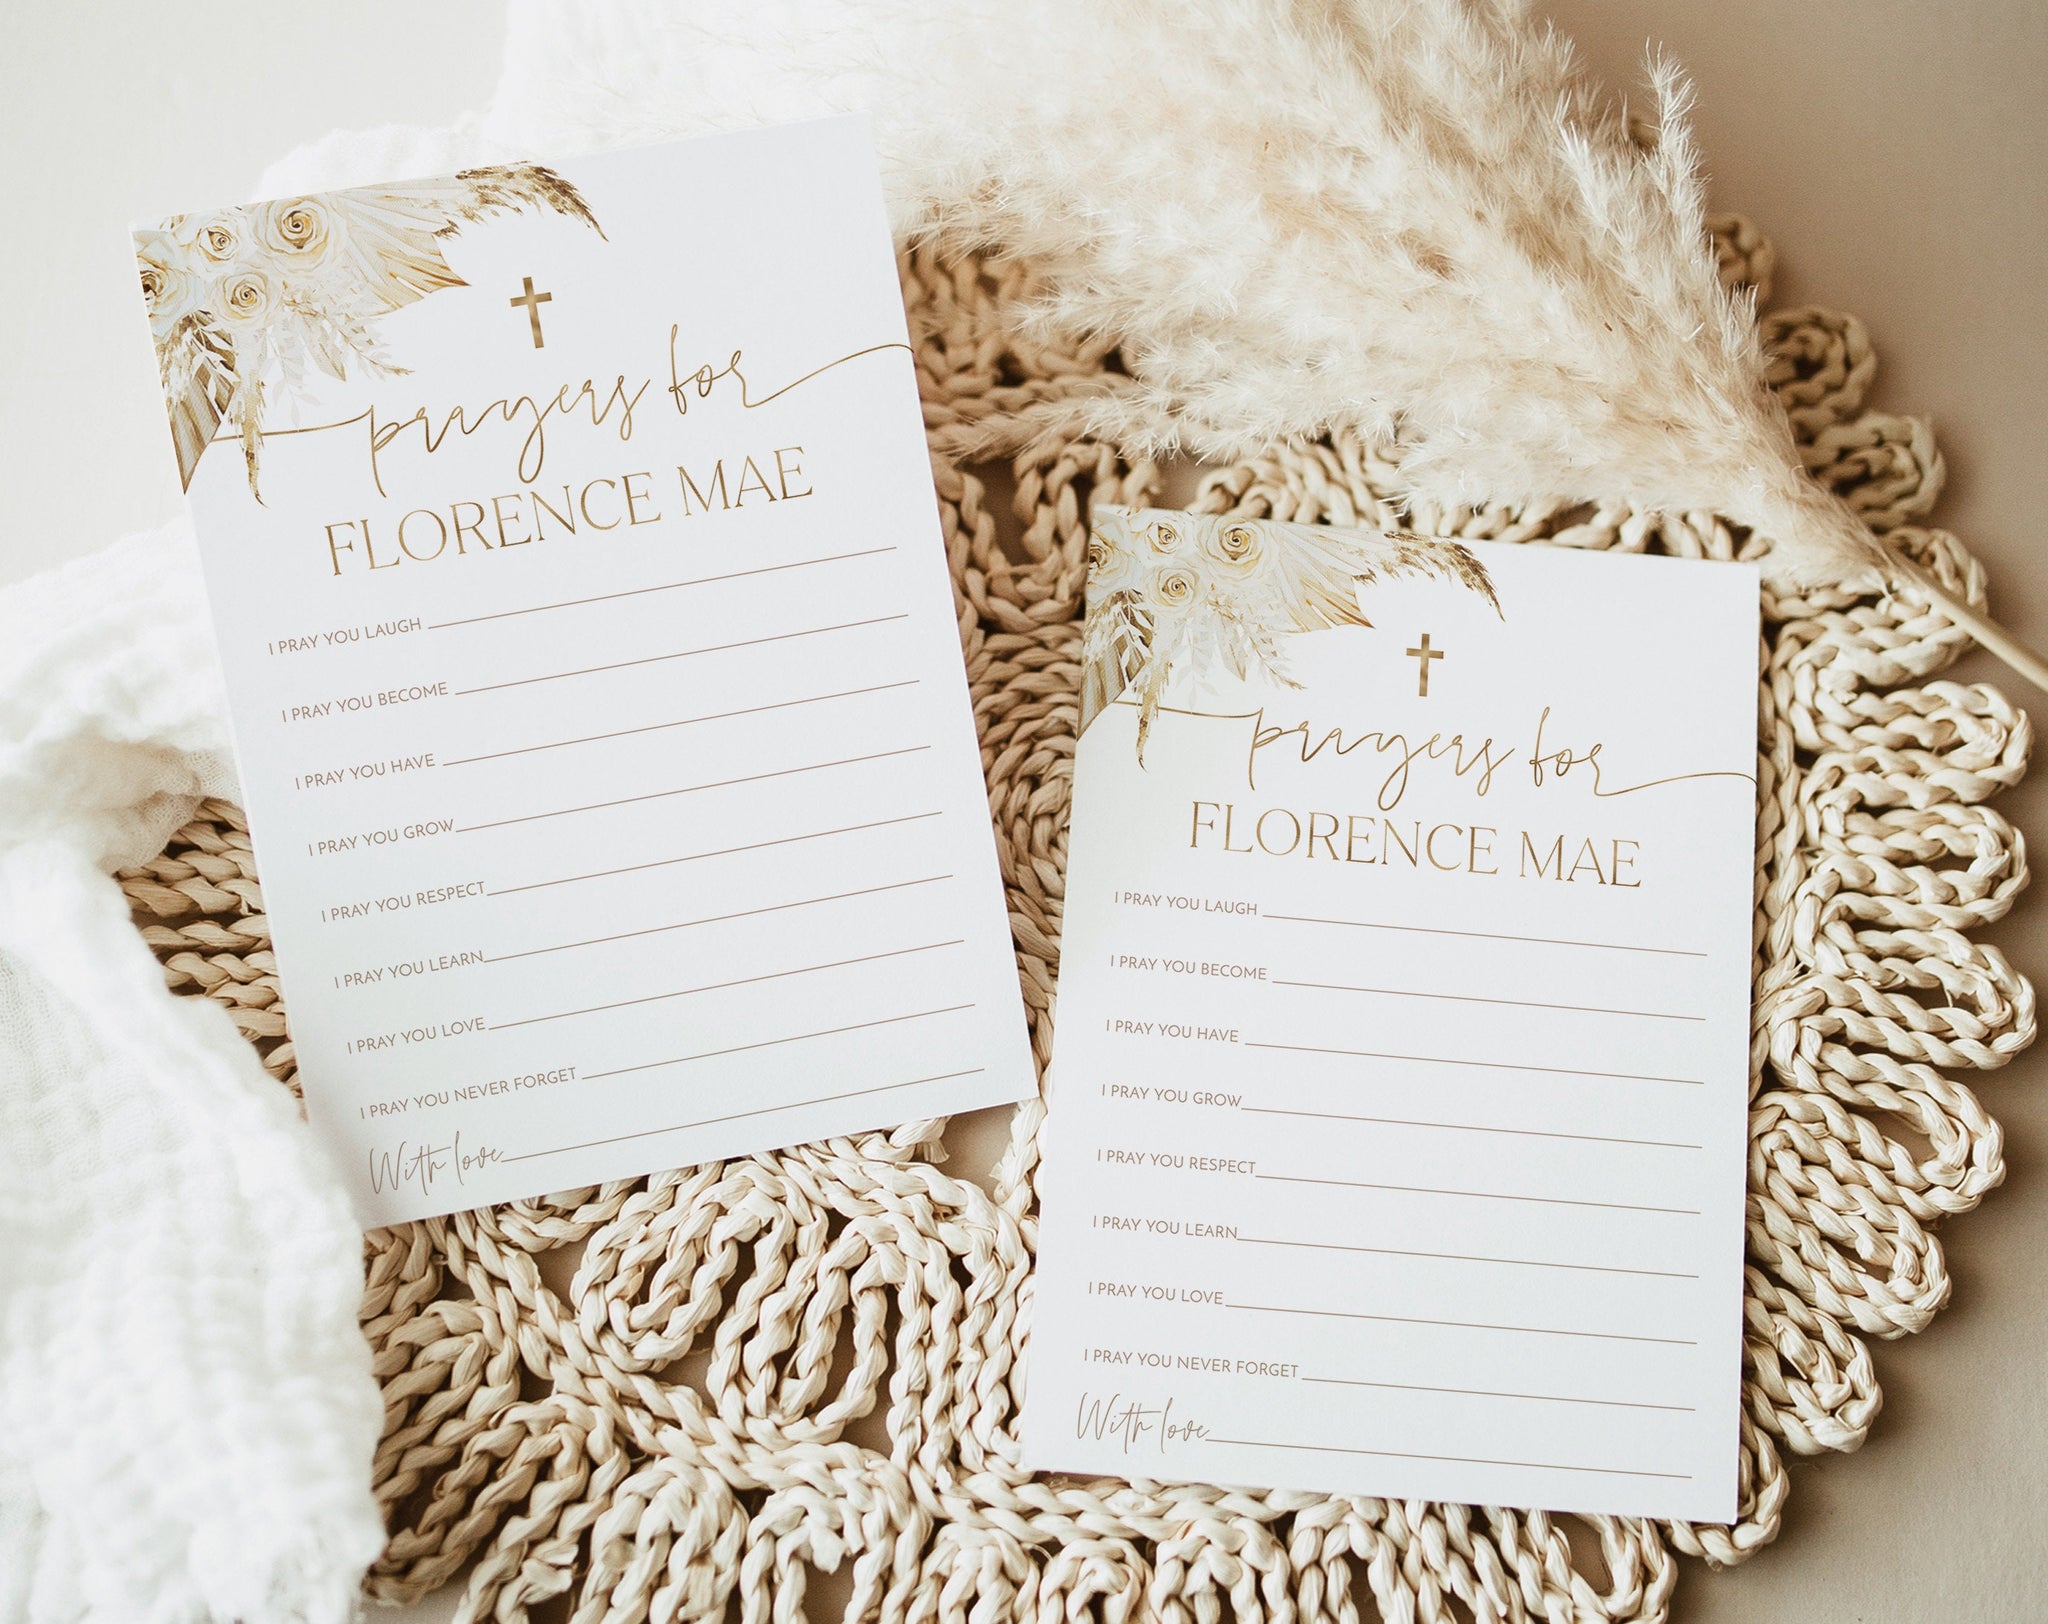 prayers for
FLORENCE MAE
I PRAY YOU LAUGH
I PRAY YOU BECOME
I PRAY YOU HAVE
I PRAY YOU GROW
I PRAY YOU RESPECT
I PRAY YOU LEARN
I PRAY YOU LOVE
I PRAY YOU NEVER FORGET
With love
prayers for
FLORENCE MAE
I PRAY YOU LAUGH
I PRAY YOU BECOME
I PRAY YOU HAVE
I PRAY YOU GROW
I PRAY YOU RESPECT
I PRAY YOU LEARN
I PRAY YOU LOVE
I PRAY YOU NEVER FORGET
With love